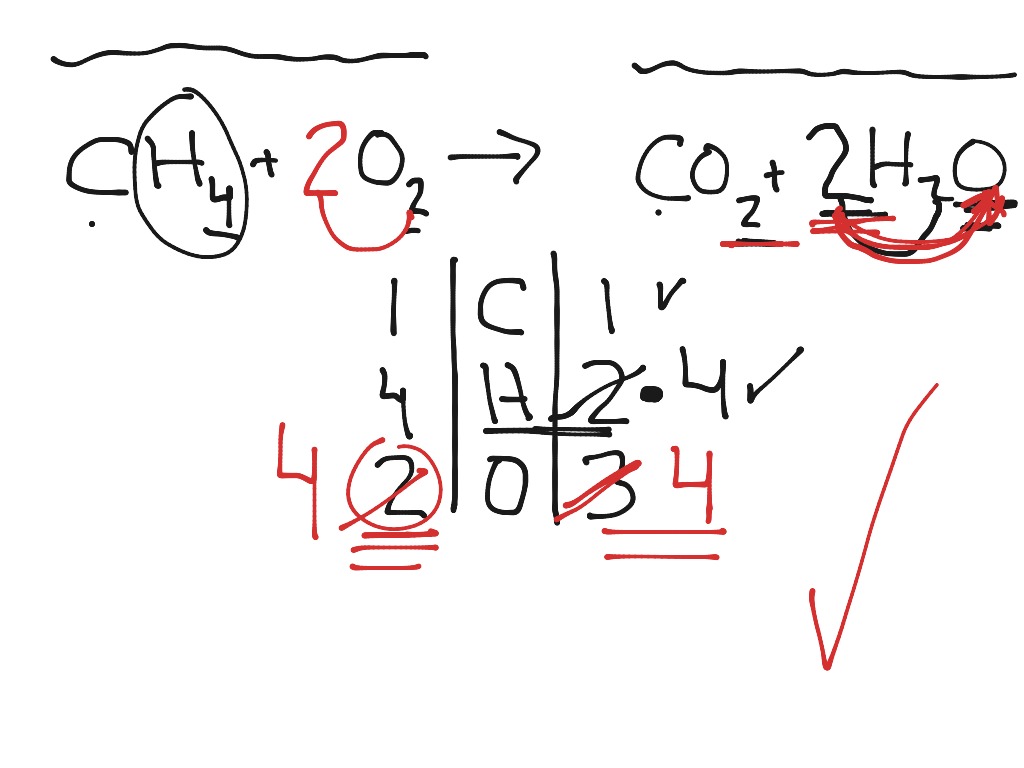 CH₄ + 2O₂ → CO₂ + 2H₂O
1 C 1 ✓
4 H 2 • 4 ✓
4 2 O 3 4
✓